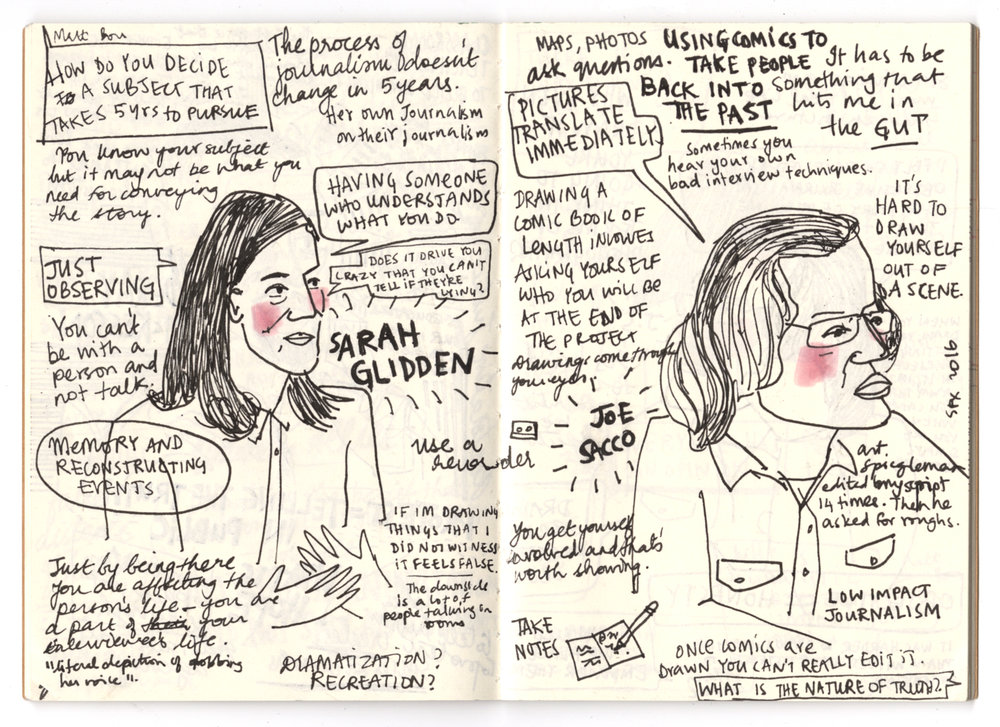 Matt Bors
HOW DO YOU DECIDE
TO A SUBJECT THAT
TAKES 5 yrs to PURSUE
The process of
journalism doesn't
change in 5 years.
Her own Journalism
on their journalism
You know your subject
but it may not be what you
need for conveying
the story.
HAVING SOMEONE
WHO UNDERSTANDS
WHAT YOU DO.
DOES IT DRIVE YOU
CRAZY THAT YOU CAN'T
TELL IF THEY'RE
LYING?
JUST
OBSERVING
You can't
be with a
person and
not talk.
SARAH
GLIDDEN
MEMORY AND
RECONSTRUCTING
EVENTS
use a
recorder
IF IM DRAWING
THINGS THAT I
DID NOT WITNESS
IT FEELS FALSE.
The downside
is a lot of
people talking in
rooms
Just by being there
you are affecting the
person's life - you are
a part of their your
interviewee's life.
"literal depiction of robbing
her voice".
DRAMATIZATION?
RECREATION?
MAPS, PHOTOS
ask questions.
USING COMICS TO
TAKE PEOPLE
BACK INTO
THE PAST
It has to be
something that
hits me in
the GUT
PICTURES
TRANSLATE
IMMEDIATELY
sometimes you
hear your own
bad interview techniques.
DRAWING A
COMIC BOOK OF
LENGTH INVOLVES
ASKING YOURSELF
WHO YOU WILL BE
AT THE END OF
THE PROJECT
Drawings come through
your eyes
IT'S
HARD TO
DRAW
YOURSELF
OUT OF
A SCENE.
JOE
SACCO
art.
spiegleman
edited my script
14 times. Then he
asked for roughs.
You get yourself
involved and that's
worth showing.
LOW IMPACT
JOURNALISM
TAKE
NOTES
ONCE COMICS ARE
DRAWN YOU CAN'T REALLY EDIT IT.
WHAT IS THE NATURE OF TRUTH?